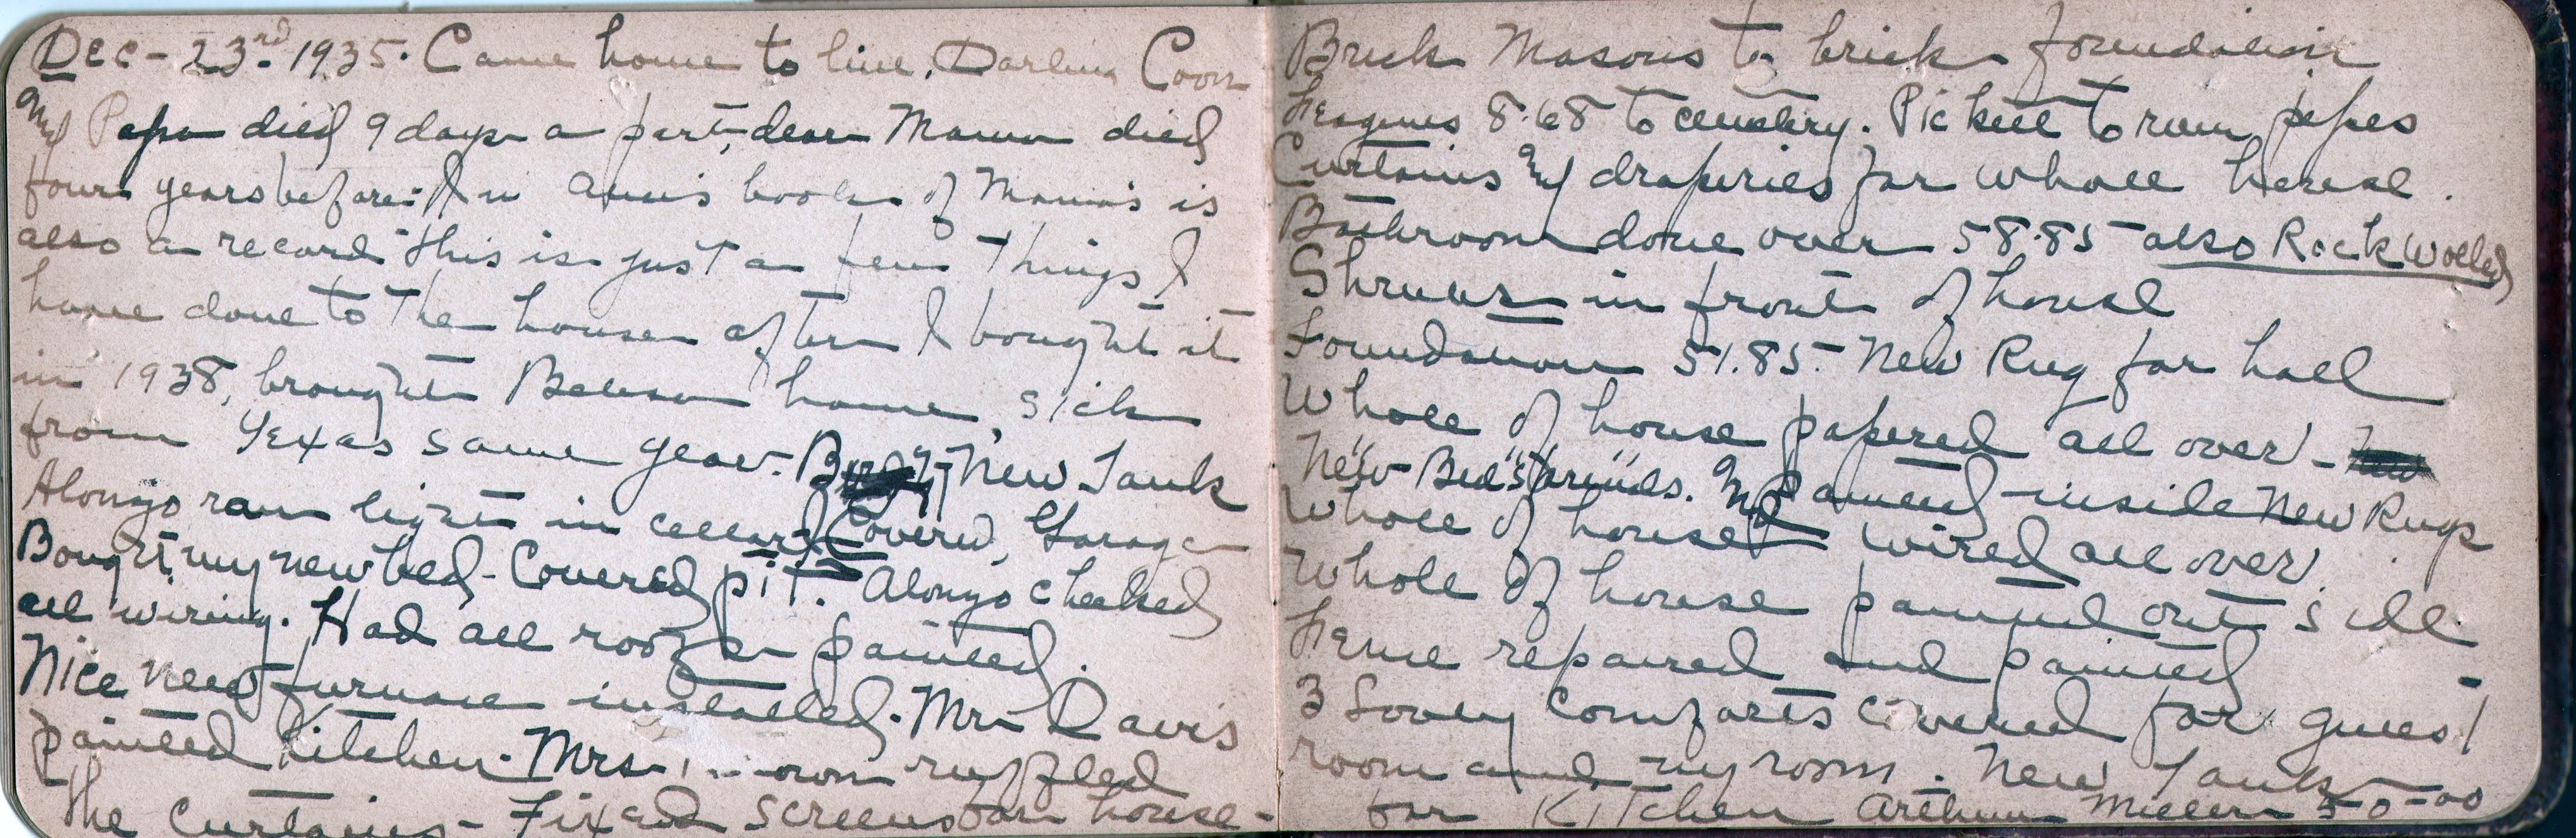 Dec - 23rd 1935. Came home to live. Darling Coon
and Papa died 9 days a part, dear Mama died
four years before. In Ann's book of Mama's is
also a record this is just a few things I
have done to the house after I bought it
in 1938, brought home, sick
from Texas same year. New Tank
Alonzo ran light in cellar Covered Garage
Bought my new bed - Covered pit. Alonzo checked
all wiring. Had all roofs painted.
Nice new furnace installed. Mr Davis
painted Kitchen. Mrs ruffled
the Curtains - Fixed screens for house -
Brick Masons to brick foundation
8.68 to cemetery. Pickett to run pipes
Curtains and draperies for whole house.
Bathroom done over 58.85 also Rock Wolled
Shrubs in front of house
Foundation 51.85. New Rug for hall
Whole of house papered all over - New
New Bed Springs. and painted inside New Rugs
Whole of house wired all over.
Whole of house painted out side
Fence repaired and painted -
3 Lovely Comforts Covered for guest
room and my room. New Tank
for Kitchen Arthur Miller 50-00